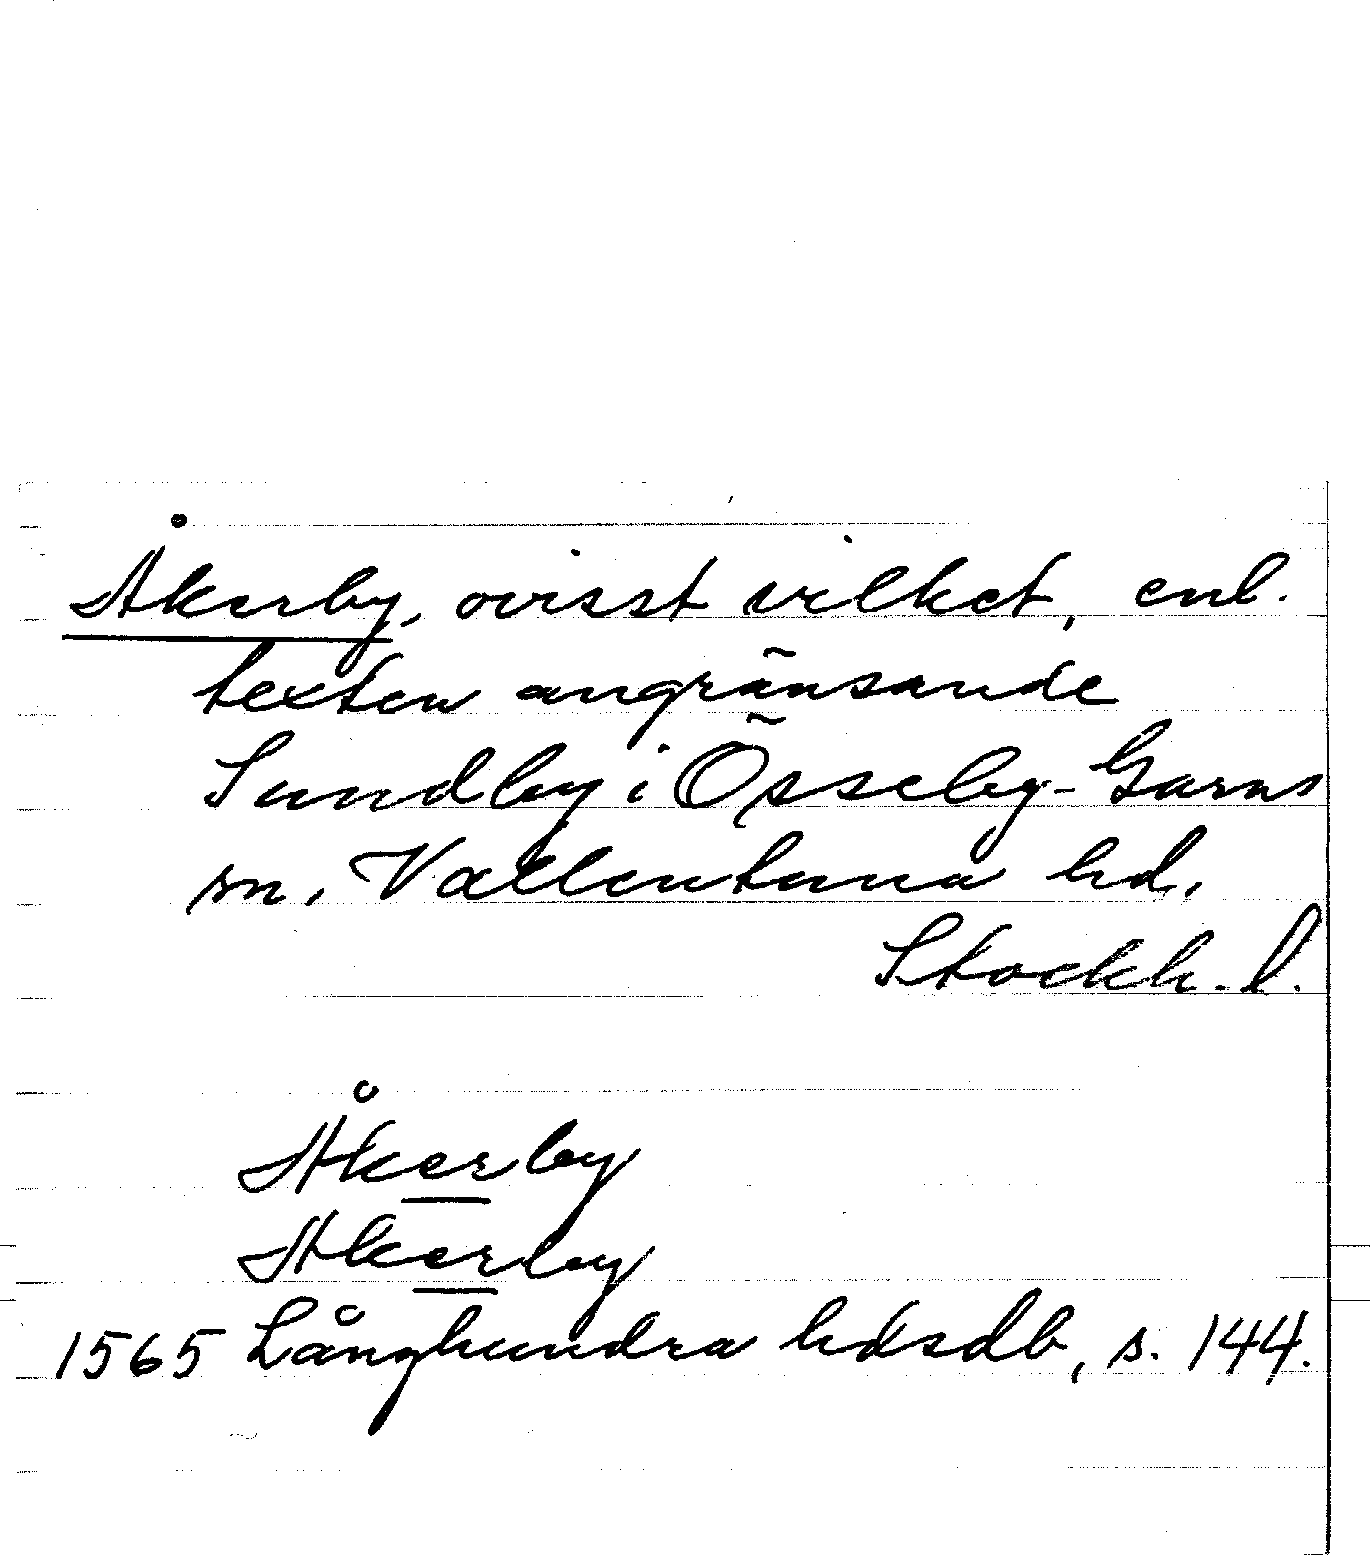 Åkerby, ovisst vilket, enl.
texten angränsande
Sundby i Össeby-Garns
sn, Vallentuna hd,
Stockh. l.
Åkerby
Akerby
1565 Långhundra hdsdb, s. 144.